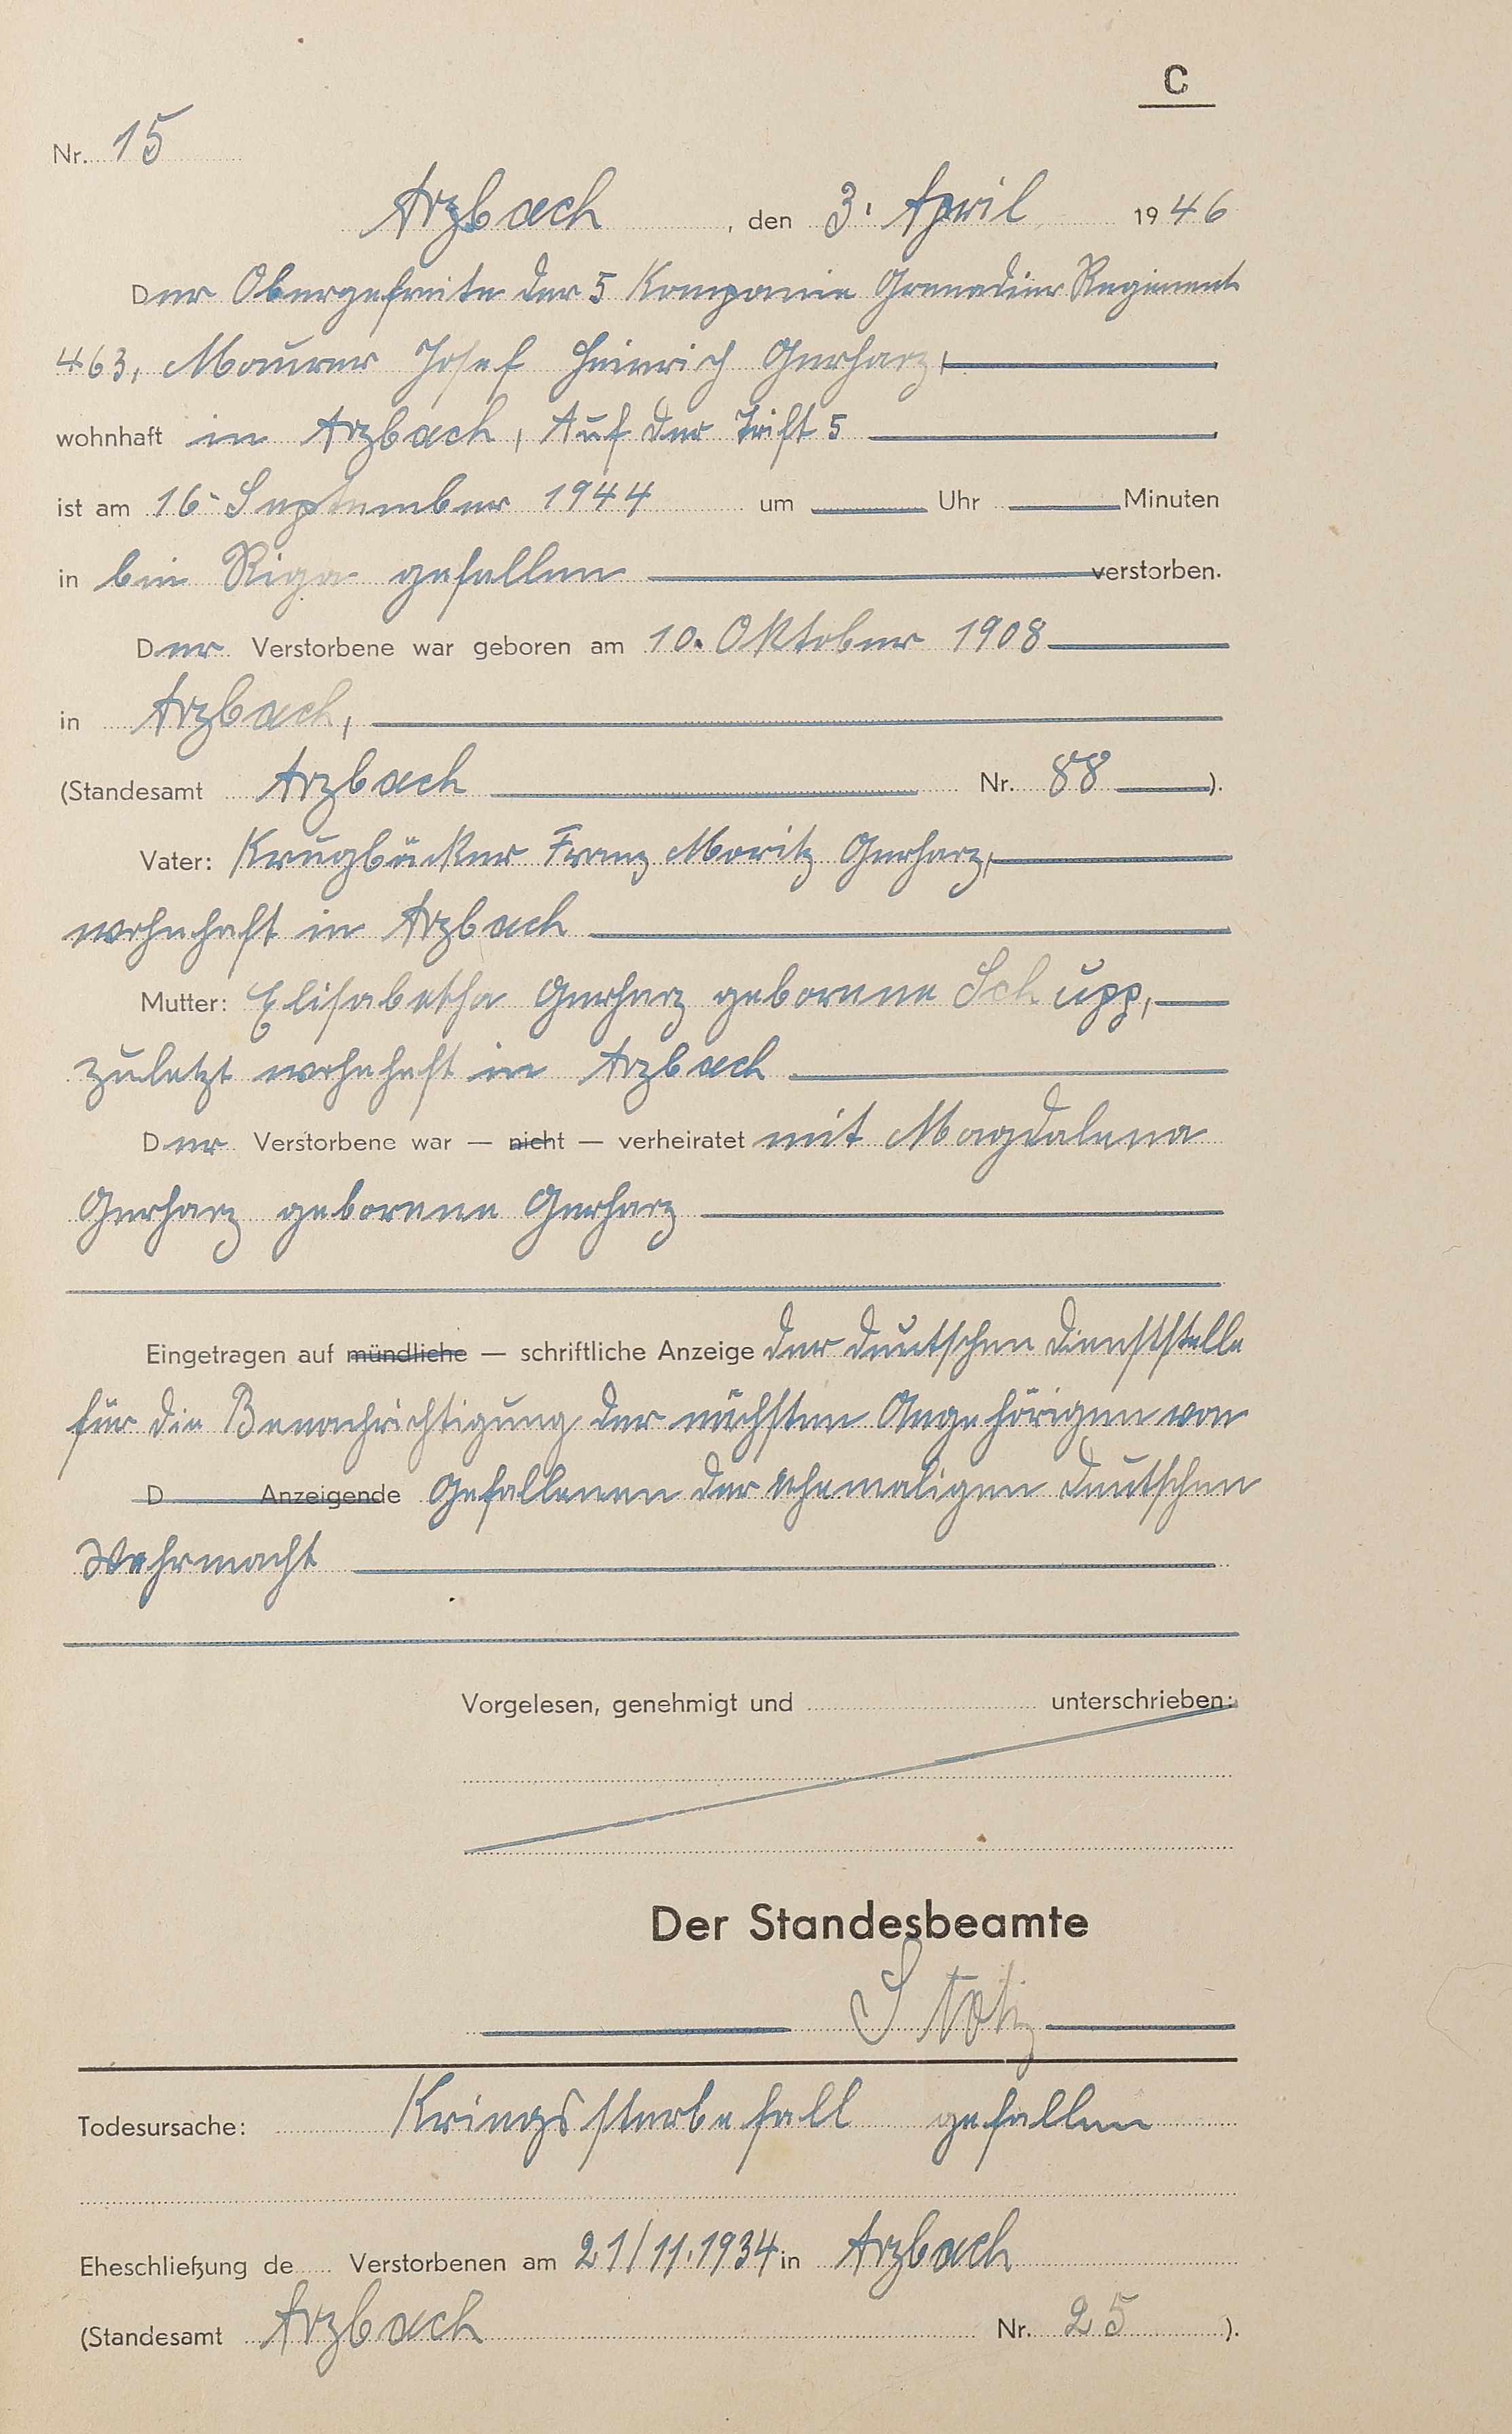 C
Nr. 15
Arzbach, den 3. April 1946
Der Obergefreite der 5 Kompanie Grenadier Regiment
463, Maurer Josef Heinrich Gerharz,
wohnhaft in Arzbach, Auf der Trift 5
ist am 16. September 1944 um Uhr Minuten
in bei Riga gefallen verstorben.
Der Verstorbene war geboren am 10. Oktober 1908
in Arzbach,
(Standesamt Arzbach Nr. 88 ).
Vater: Krugbäcker Franz Moritz Gerharz,
wohnhaft in Arzbach
Mutter: Elisabetha Gerharz geborene Schupp,
zuletzt wohnhaft in Arzbach
Der Verstorbene war — nicht — verheiratet mit Magdalena
Gerharz geborene Gerharz
Eingetragen auf mündliche — schriftliche Anzeige der deutschen Dienststelle
für die Benachrichtigung der nächsten Angehörigen von
D Anzeigende Gefallenen der ehemaligen deutschen
Wehrmacht
Vorgelesen, genehmigt und unterschrieben:
Der Standesbeamte
Todesursache: Kriegssterbefall gefallen
Eheschließung de Verstorbenen am 21/11.1934 in Arzbach
(Standesamt Arzbach Nr. 25 ).